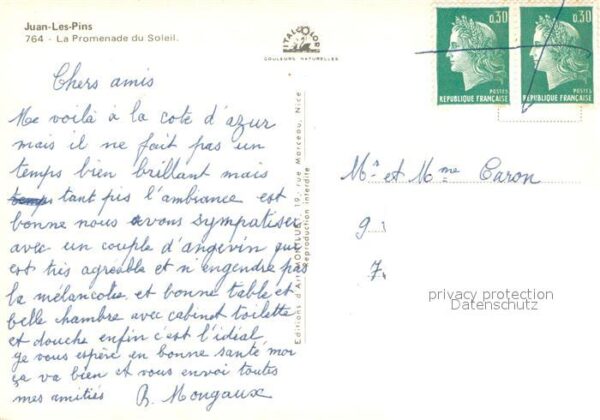 Juan-Les-Pins
764 - La Promenade du Soleil.
ITALCOLOR
COULEURS NATURELLES
0,30
0,30
POSTES
POSTES
RÉPUBLIQUE FRANÇAISE
RÉPUBLIQUE FRANÇAISE
Chers amis
Me voilà à la cote d'azur
mais il ne fait pas un
temps bien brillant mais
temps tant pis l'ambiance est
bonne nous avons sympatiser
avec un couple d'angevin qui
est très agréable et n engendre pas
la mélancolie et bonne table et
belle chambre avec cabinet toilette
et douche enfin c'est l'idéal
je vous espère en bonne santé moi
ça va bien et vous envoi toutes
mes amitiés R. Mongaux
Editions d'Art MONTLUET, 19, rue Marceau, Nice
Reproduction interdite
Mr et Mme Caron
9
7
privacy protection
Datenschutz